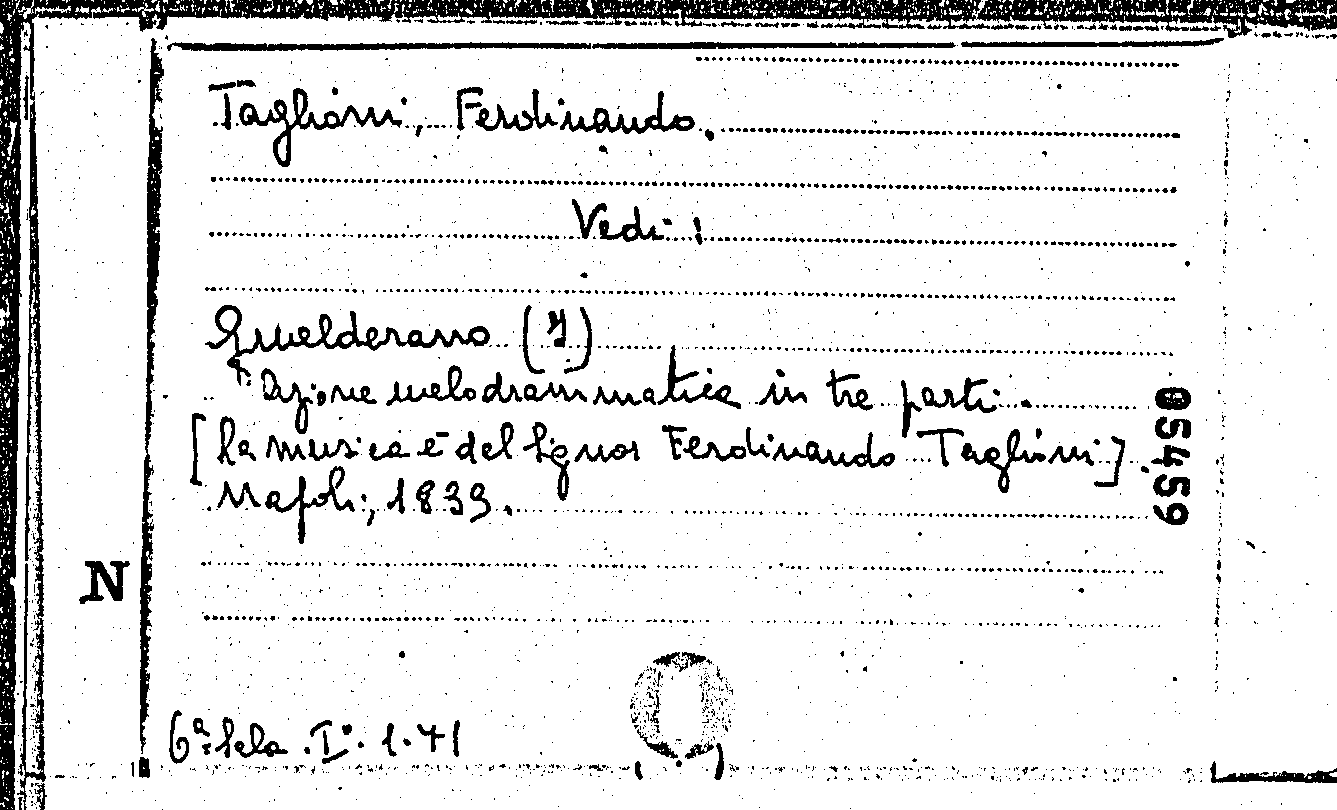 Taglioni, Ferdinando.
Vedi:
Guelderano (I)
Azione melodrammatica in tre parti.
[La musica è del Signor Ferdinando Taglioni]
Napoli, 1839.
054459
N
6ª Sala . I°. 1.41